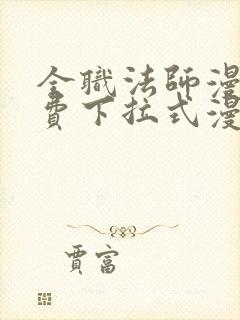 全職法師漫
費下拉式漫
賈富